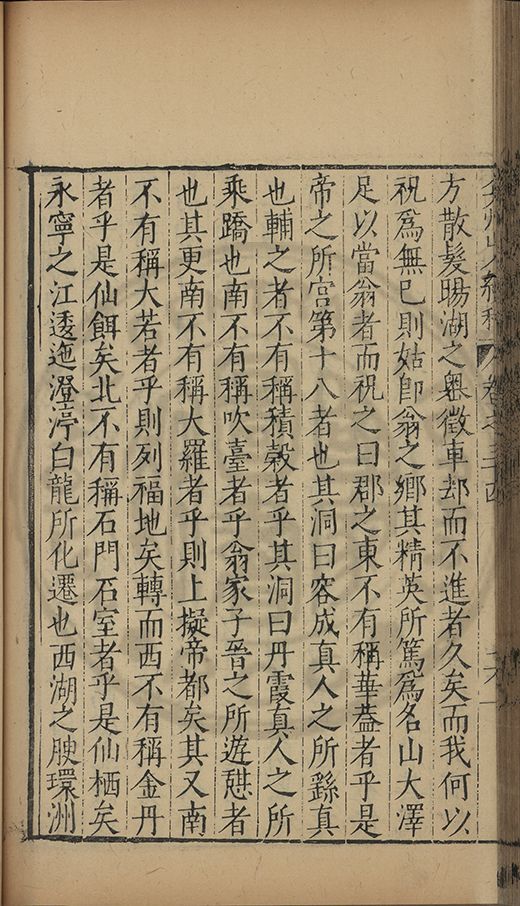 弇州山人續稿 卷之三十四
方散髮暘湖之奧徵車却而不進者久矣而我何以
祝為無已則姑卽翁之鄉其精英所篤為名山大澤
足以當翁者而祝之曰郡之東不有稱華葢者乎是
帝之所宮第十八者也其洞曰容成真人之所繇真
也輔之者不有稱積穀者乎其洞曰丹霞真人之所
乘蹻也南不有稱吹臺者乎翁家子晉之所遊憇者
也其更南不有稱大羅者乎則上擬帝都矣其又南
不有稱大若者乎則列福地矣轉而西不有稱金丹
者乎是仙餌矣北不有稱石門石室者乎是仙栖矣
永寧之江逶迤澄渟白龍所化遷也西湖之腴環洲